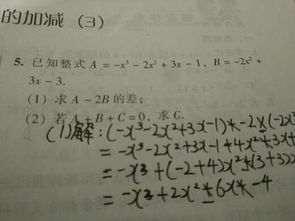 的加减（3）
5. 已知整式 A = -x³ - 2x² + 3x - 1，B = -2x² +
3x - 3.
(1) 求 A - 2B 的差；
(2) 若 A + B + C = 0，求 C.
(1)解：(-x³-2x²+3x-1)-2×(-2x²
= -x³-2x²+3x-1+4x²
= -x³+(-2+4)x²
= -x³+2x² 6x -4